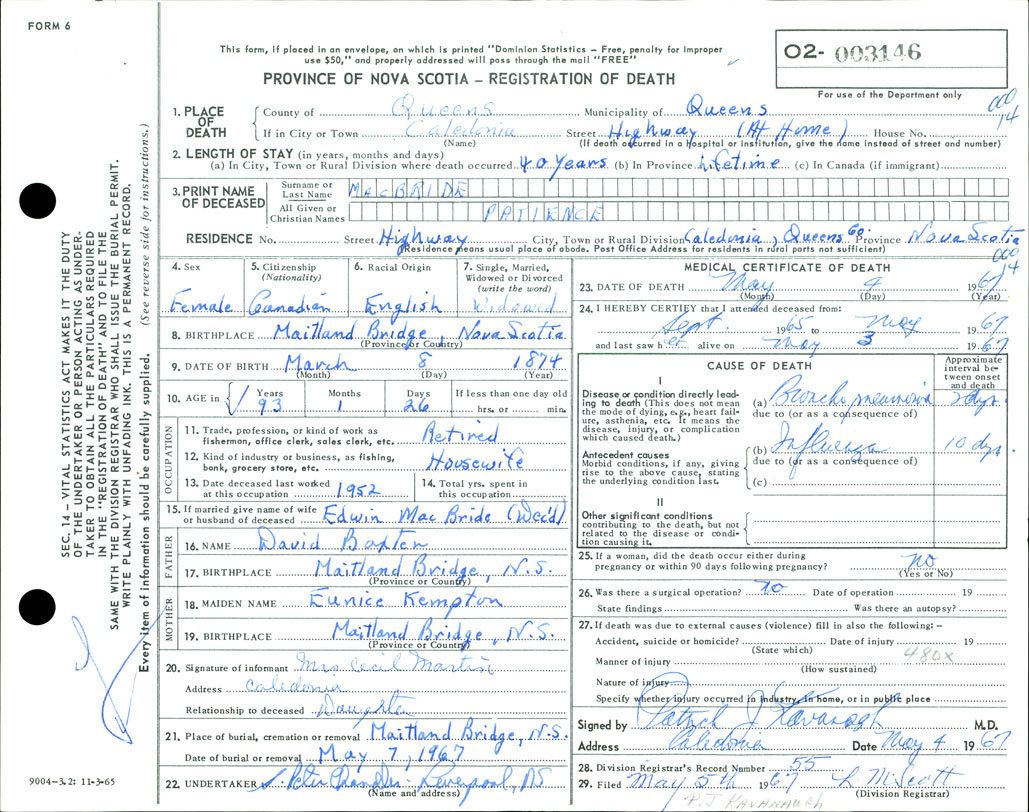 FORM 6
This form, if placed in an envelope, on which is printed "Dominion Statistics – Free, penalty for improper
use $50," and properly addressed will pass through the mail "FREE"
PROVINCE OF NOVA SCOTIA – REGISTRATION OF DEATH
O2- 003146
For use of the Department only
000
14
1. PLACE OF DEATH
County of Queens Municipality of Queens
If in City or Town Caledonia Street Highway (At Home) House No.
(Name) (If death occurred in a Hospital or institution, give the name instead of street and number)
2. LENGTH OF STAY (in years, months and days)
(a) In City, Town or Rural Division where death occurred 40 Years (b) In Province Lifetime (c) In Canada (if immigrant)
3. PRINT NAME OF DECEASED
Surname or Last Name MACBRIDE
All Given or Christian Names PATIENCE
RESIDENCE No. Street Highway City, Town or Rural Division Caledonia, Queens Co. Province Nova Scotia
(Residence means usual place of abode. Post Office Address for residents in rural parts not sufficient)
000
14
4. Sex Female
5. Citizenship (Nationality) Canadian
6. Racial Origin English
7. Single, Married, Widowed or Divorced (write the word) Widowed
8. BIRTHPLACE Maitland Bridge, Nova Scotia
(Province or Country)
9. DATE OF BIRTH March 8 1874
(Month) (Day) (Year)
10. AGE in Years 93 Months 1 Days 26 If less than one day old hrs. or min.
OCCUPATION
11. Trade, profession, or kind of work as fisherman, office clerk, sales clerk, etc. Retired
12. Kind of industry or business, as fishing, bank, grocery store, etc. Housewife
13. Date deceased last worked at this occupation 1952
14. Total yrs. spent in this occupation
15. If married give name of wife or husband of deceased Edwin MacBride (Dec'd)
FATHER
16. NAME David Baxter
17. BIRTHPLACE Maitland Bridge, N.S.
(Province or Country)
MOTHER
18. MAIDEN NAME Eunice Kempton
19. BIRTHPLACE Maitland Bridge, N.S.
(Province or Country)
20. Signature of informant Mrs Cecil Martin
Address Caledonia
Relationship to deceased Daughter
21. Place of burial, cremation or removal Maitland Bridge, N.S.
Date of burial or removal May 7, 1967
22. UNDERTAKER Peter Chandler - Liverpool, NS
(Name and address)
MEDICAL CERTIFICATE OF DEATH
23. DATE OF DEATH May 4 1967
(Month) (Day) (Year)
24. I HEREBY CERTIFY that I attended deceased from:
Sept 1965 to May 1967
and last saw her alive on May 3 1967
CAUSE OF DEATH
Approximate interval between onset and death
I
Disease or condition directly leading to death (This does not mean the mode of dying, e.g., heart failure, asthenia, etc. It means the disease, injury, or complication which caused death.)
(a) Broncho pneumonia 2 dys.
due to (or as a consequence of)
Antecedent causes
Morbid conditions, if any, giving rise to the above cause, stating the underlying condition last.
(b) Influenza 10 dys.
due to (or as a consequence of)
(c)
II
Other significant conditions contributing to the death, but not related to the disease or condition causing it.
25. If a woman, did the death occur either during pregnancy or within 90 days following pregnancy? no
(Yes or No)
26. Was there a surgical operation? no Date of operation 19
State findings Was there an autopsy?
27. If death was due to external causes (violence) fill in also the following:–
Accident, suicide or homicide? Date of injury 19
(State which) 480x
Manner of injury
(How sustained)
Nature of injury
Specify whether injury occurred in industry, in home, or in public place
Signed by Patrick J Kavanagh M.D.
Address Caledonia Date May 4 1967
28. Division Registrar's Record Number 55
29. Filed May 5th 1967 L McScott
(Division Registrar)
PJ KAVANAUGH
9004-3.2: 11-3-65
SEC. 14 – VITAL STATISTICS ACT MAKES IT THE DUTY
OF THE UNDERTAKER OR PERSON ACTING AS UNDER-
TAKER TO OBTAIN ALL THE PARTICULARS REQUIRED
IN THE "REGISTRATION OF DEATH" AND TO FILE THE
SAME WITH THE DIVISION REGISTRAR WHO SHALL ISSUE THE BURIAL PERMIT.
WRITE PLAINLY WITH UNFADING INK. THIS IS A PERMANENT RECORD.
Every item of information should be carefully supplied. (See reverse side for instructions.)